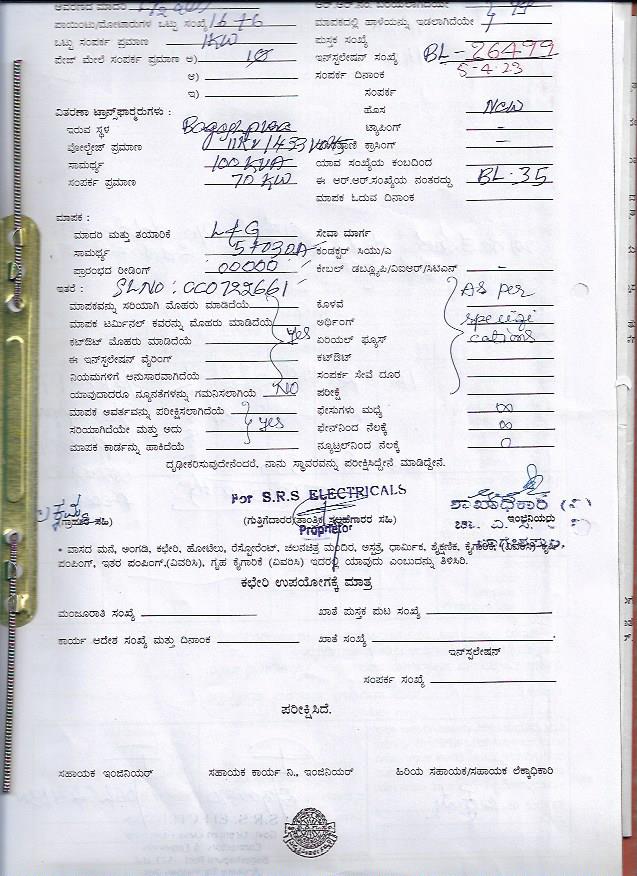 ಪಾಯಿಂಟು/ಮೋಟಾರುಗಳ ಒಟ್ಟು ಸಂಖ್ಯೆ 16+6
ಮಾಪಕದಲ್ಲಿ ಹಾಳೆಯನ್ನು ಇಡಲಾಗಿದೆಯೇ
ಒಟ್ಟು ಸಂಪರ್ಕ ಪ್ರಮಾಣ 1KW
ಪುಸ್ತಕ ಸಂಖ್ಯೆ
ಪೇಜ್ ಮೇಲೆ ಸಂಪರ್ಕ ಪ್ರಮಾಣ ಅ) 1Ø
ಇನ್‌ಸ್ಟಲೇಷನ್ ಸಂಖ್ಯೆ BL-26499
5-4-23
ಆ)
ಸಂಪರ್ಕ ದಿನಾಂಕ
ಇ)
ಸಂಪರ್ಕ
ಹೊಸ New
ವಿತರಣಾ ಟ್ರಾನ್ಸ್‌ಫಾರ್‍ಮರುಗಳು :
ಇರುವ ಸ್ಥಳ
ಟ್ಯಾಪಿಂಗ್ -
ವೋಲ್ಟೇಜ್ ಪ್ರಮಾಣ
ಕ್ರಾಸಿಂಗ್ -
ಸಾಮರ್ಥ್ಯ 100 KVA
ಯಾವ ಸಂಖ್ಯೆಯ ಕಂಬದಿಂದ
ಸಂಪರ್ಕ ಪ್ರಮಾಣ 70 KW
ಈ ಆರ್.ಆರ್.ಸಂಖ್ಯೆಯ ನಂತರದ್ದು BL-35
ಮಾಪಕ ಓದುವ ದಿನಾಂಕ
ಮಾಪಕ :
ಮಾದರಿ ಮತ್ತು ತಯಾರಿಕೆ L+G
ಸೇವಾ ಮಾರ್ಗ
ಸಾಮರ್ಥ್ಯ 5-030A
ಕಂಡಕ್ಟರ್ ಸಿಯು/ಎ
ಪ್ರಾರಂಭದ ರೀಡಿಂಗ್ 00000
ಕೇಬಲ್ ಡಬ್ಲ್ಯೂಪಿ/ವಿಐಆರ್/ಸಿಟಿಎಸ್ -
ಇತರೆ : SL.NO : 000722661
As per
ಮಾಪಕವನ್ನು ಸರಿಯಾಗಿ ಮೊಹರು ಮಾಡಿದೆಯೆ
ಕೊಳವೆ
ಮಾಪಕ ಟರ್ಮಿನಲ್ ಕವರನ್ನು ಮೊಹರು ಮಾಡಿದೆಯೆ
ಅರ್ಥಿಂಗ್ specifi
ಕಟ್‌ಔಟ್ ಮೊಹರು ಮಾಡಿದೆಯೆ yes
ಏರಿಯಲ್ ಫ್ಯೂಸ್ cations
ಈ ಇನ್‌ಸ್ಟಲೇಷನ್ ವೈರಿಂಗ್
ಕಟ್‌ಔಟ್
ನಿಯಮಗಳಿಗೆ ಅನುಸಾರವಾಗಿದೆಯೆ
ಸಂಪರ್ಕ ಸೇವೆ ದೂರ
ಯಾವುದಾದರೂ ನ್ಯೂನತೆಗಳನ್ನು ಗಮನಿಸಲಾಗಿಯೆ NO
ಪರೀಕ್ಷೆ
ಮಾಪಕ ಅವರ್ತವನ್ನು ಪರೀಕ್ಷಿಸಲಾಗಿದೆಯೆ
ಫೇಸುಗಳು ಮಧ್ಯೆ ∞
ಸರಿಯಾಗಿದೆಯೇ ಮತ್ತು ಅದು yes
ಫೇಸ್‌ನಿಂದ ನೆಲಕ್ಕೆ ∞
ಮಾಪಕ ಕಾರ್ಡನ್ನು ಹಾಕಿದೆಯೆ
ನ್ಯೂಟ್ರಲ್‌ನಿಂದ ನೆಲಕ್ಕೆ 0
ದೃಢೀಕರಿಸುವುದೇನೆಂದರೆ, ನಾನು ಸ್ಥಾವರವನ್ನು ಪರೀಕ್ಷಿಸಿದ್ದೇನೆ ಮಾಡಿದ್ದೇನೆ.
For S.R.S ELECTRICALS
ಶಾಖಾಧಿಕಾರಿ
(ಗ್ರಾಹಕರ ಸಹಿ)
(ಗುತ್ತಿಗೆದಾರರ/ತಾಂತ್ರಿಕ ಸಲಹೆಗಾರರ ಸಹಿ)
ಇಂಜಿನಿಯರು
Proprietor
* ವಾಸದ ಮನೆ, ಅಂಗಡಿ, ಕಛೇರಿ, ಹೋಟೆಲು, ರೆಸ್ಟೋರೆಂಟ್, ಚಲನಚಿತ್ರ ಮಂದಿರ, ಆಸ್ಪತ್ರೆ, ಧಾರ್ಮಿಕ, ಶೈಕ್ಷಣಿಕ, ಕೈಗಾರಿಕೆ, (ವಿವರಿಸಿ) ಕೃಷಿ
ಪಂಪಿಂಗ್, ಇತರ ಪಂಪಿಂಗ್,(ವಿವರಿಸಿ), ಗೃಹ ಕೈಗಾರಿಕೆ (ವಿವರಿಸಿ) ಇದರಲ್ಲಿ ಯಾವುದು ಎಂಬುದನ್ನು ತಿಳಿಸಿರಿ.
ಕಛೇರಿ ಉಪಯೋಗಕ್ಕೆ ಮಾತ್ರ
ಮಂಜೂರಾತಿ ಸಂಖ್ಯೆ
ಖಾತೆ ಪುಸ್ತಕ ಪುಟ ಸಂಖ್ಯೆ
ಕಾರ್ಯ ಆದೇಶ ಸಂಖ್ಯೆ ಮತ್ತು ದಿನಾಂಕ
ಖಾತೆ ಸಂಖ್ಯೆ
ಇನ್‌ಸ್ಟಲೇಷನ್
ಸಂಪರ್ಕ ಸಂಖ್ಯೆ
ಪರೀಕ್ಷಿಸಿದೆ.
ಸಹಾಯಕ ಇಂಜಿನಿಯರ್
ಸಹಾಯಕ ಕಾರ್ಯ ನಿ., ಇಂಜಿನಿಯರ್
ಹಿರಿಯ ಸಹಾಯಕ/ಸಹಾಯಕ ಲೆಕ್ಕಾಧಿಕಾರಿ